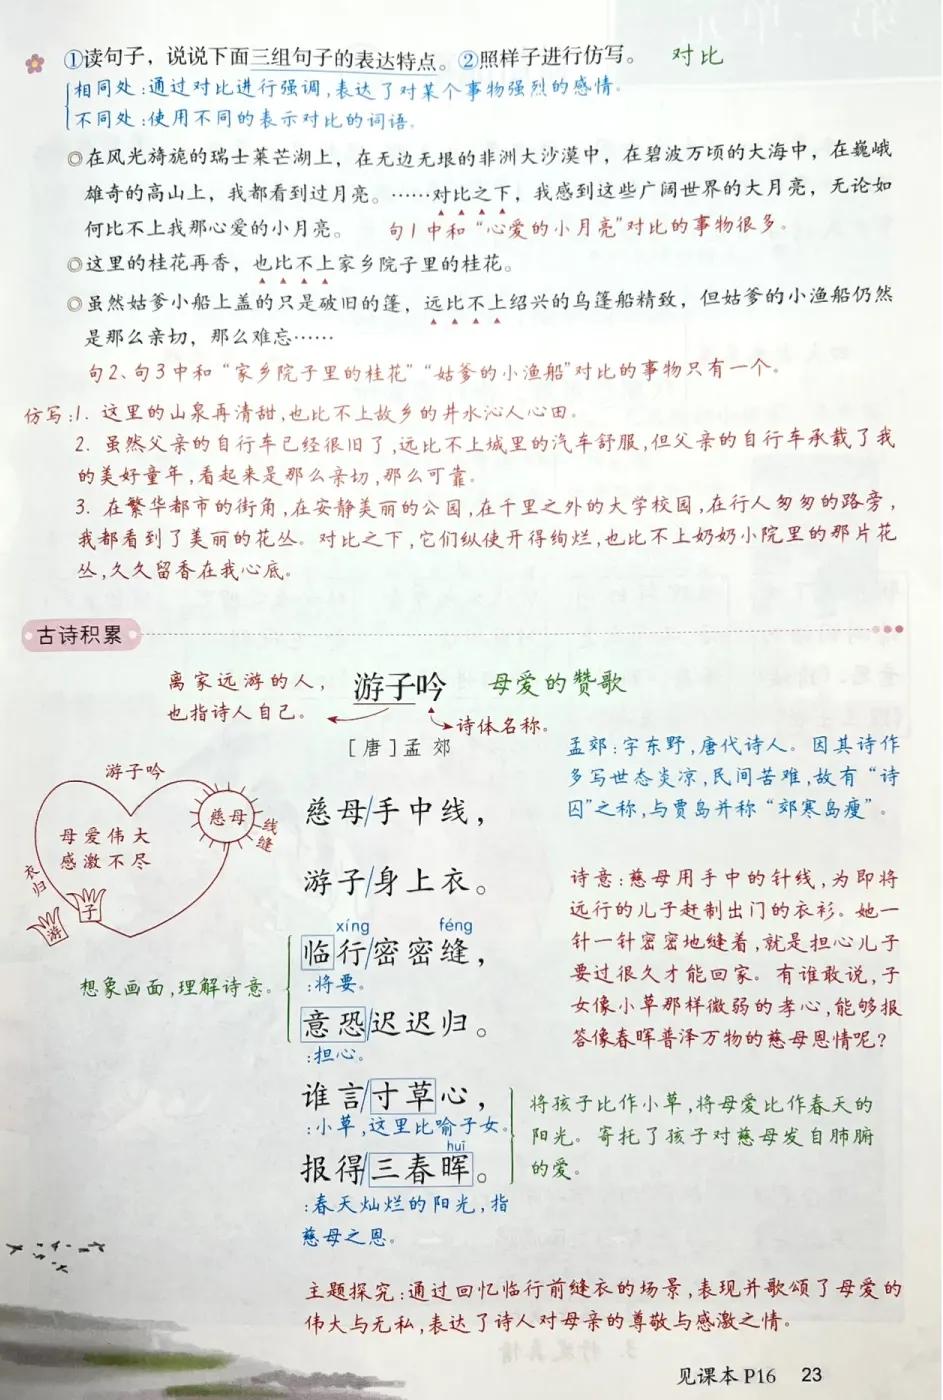 ①读句子，说说下面三组句子的表达特点。②照样子进行仿写。 对比
相同处:通过对比进行强调,表达了对某个事物强烈的感情。
不同处:使用不同的表示对比的词语。
◎在风光旖旎的瑞士莱芒湖上，在无边无垠的非洲大沙漠中，在碧波万顷的大海中，在巍峨
雄奇的高山上，我都看到过月亮。……对比之下，我感到这些广阔世界的大月亮，无论如
何比不上我那心爱的小月亮。 句1中和“心爱的小月亮”对比的事物很多。
◎这里的桂花再香，也比不上家乡院子里的桂花。
◎虽然姑爹小船上盖的只是破旧的篷，远比不上绍兴的乌篷船精致，但姑爹的小渔船仍然
是那么亲切，那么难忘……
句2、句3中和“家乡院子里的桂花”“姑爹的小渔船”对比的事物只有一个。
仿写:1. 这里的山泉再清甜,也比不上故乡的井水沁人心田。
2. 虽然父亲的自行车已经很旧了,远比不上城里的汽车舒服,但父亲的自行车承载了我
的美好童年,看起来是那么亲切,那么可靠。
3. 在繁华都市的街角,在安静美丽的公园,在千里之外的大学校园,在行人匆匆的路旁,
我都看到了美丽的花丛。对比之下,它们纵使开得绚烂,也比不上奶奶小院里的那片花
丛,久久留香在我心底。
古诗积累
离家远游的人,
也指诗人自己。
游子吟
母爱的赞歌
诗体名称。
[唐]孟郊
孟郊:字东野,唐代诗人。因其诗作
多写世态炎凉,民间苦难,故有“诗
囚”之称,与贾岛并称“郊寒岛瘦”。
游子吟
慈母
线
缝
母爱伟大
感激不尽
衣
归
游
子
慈母/手中线，
游子/身上衣。
xíng féng
临行/密密缝，
:将要。
意恐/迟迟归。
:担心。
想象画面,理解诗意。
诗意:慈母用手中的针线,为即将
远行的儿子赶制出门的衣衫。她一
针一针密密地缝着,就是担心儿子
要过很久才能回家。有谁敢说,子
女像小草那样微弱的孝心,能够报
答像春晖普泽万物的慈母恩情呢?
谁言/寸草心，
:小草,这里比喻子女。
huī
报得/三春晖。
:春天灿烂的阳光,指
慈母之恩。
将孩子比作小草,将母爱比作春天的
阳光。寄托了孩子对慈母发自肺腑
的爱。
主题探究:通过回忆临行前缝衣的场景,表现并歌颂了母爱的
伟大与无私,表达了诗人对母亲的尊敬与感激之情。
见课本P16 23